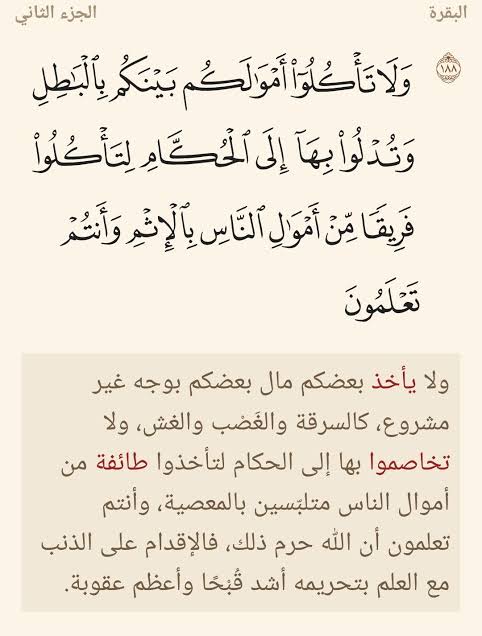 البقرة الجزء الثاني
١٨٨ وَلَا تَأۡكُلُوٓاْ أَمۡوَٰلَكُم بَيۡنَكُم بِٱلۡبَٰطِلِ
وَتُدۡلُواْ بِهَآ إِلَى ٱلۡحُكَّامِ لِتَأۡكُلُواْ
فَرِيقٗا مِّنۡ أَمۡوَٰلِ ٱلنَّاسِ بِٱلۡإِثۡمِ وَأَنتُمۡ
تَعۡلَمُونَ
ولا يأخذ بعضكم مال بعضكم بوجه غير
مشروع، كالسرقة والغَصْب والغش، ولا
تخاصموا بها إلى الحكام لتأخذوا طائفة من
أموال الناس متلبّسين بالمعصية، وأنتم
تعلمون أن الله حرم ذلك، فالإقدام على الذنب
مع العلم بتحريمه أشد قُبْحًا وأعظم عقوبة.